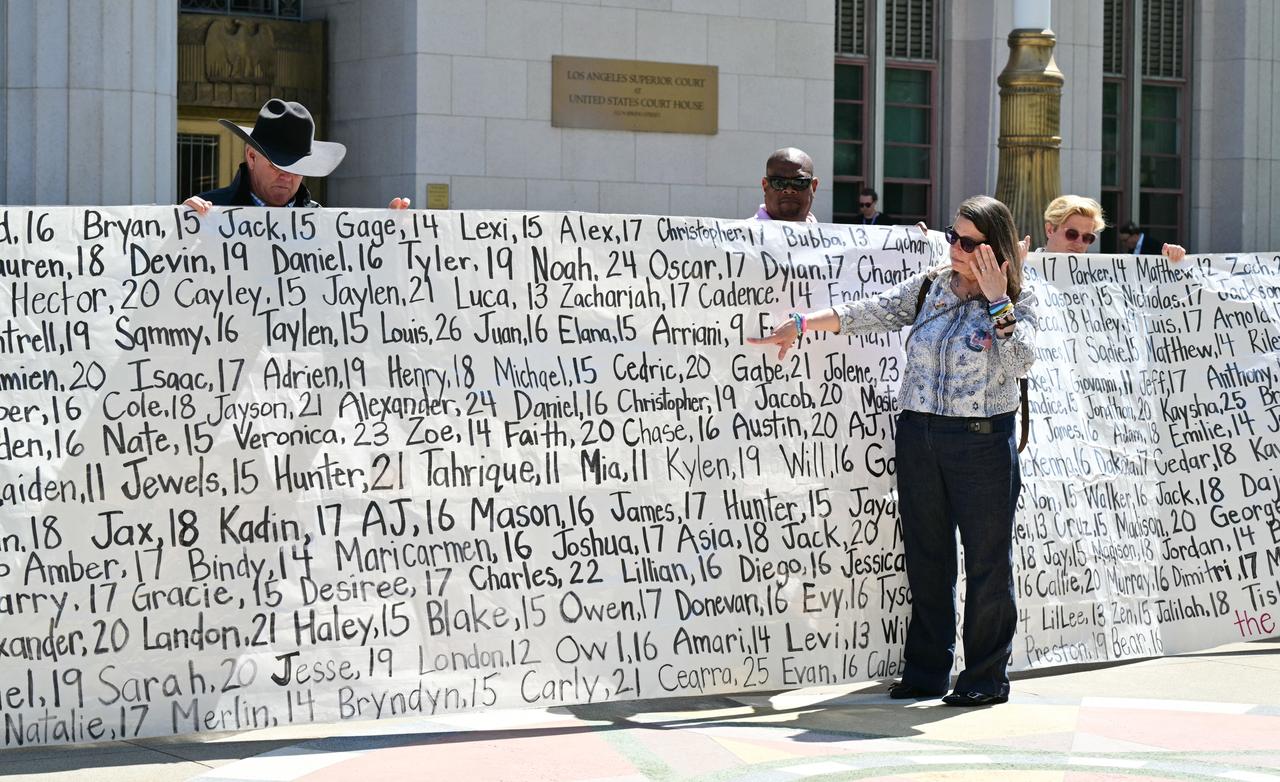 LOS ANGELES SUPERIOR COURT
AT
UNITED STATES COURT HOUSE
16 Bryan, 15 Jack, 15 Gage, 14 Lexi, 15 Alex, 17 Christopher, 17 Bubba, 13 Zachary
18 Devin, 19 Daniel, 16 Tyler, 19 Noah, 24 Oscar, 17 Dylan, 17 17 Parker, 14 Matthew, 12 Zach,
Hector, 20 Cayley, 15 Jaylen, 21 Luca, 13 Zachariah, 17 Cadence, 14 Jasper, 15 Nicholas, 17 Jackson
19 Sammy, 16 Taylen, 15 Louis, 26 Juan, 16 Elana, 15 Arriani, 9 18 Haley, 17 Luis, 17 Arnold,
20 Isaac, 17 Adrien, 19 Henry, 18 Michael, 15 Cedric, 20 Gabe, 21 Jolene, 23 17 Sadie, 15 Matthew, 14
16 Cole, 18 Jayson, 21 Alexander, 24 Daniel, 16 Christopher, 19 Jacob, 20 17 Giovanni, 11 Jeff, 17 Anthony,
16 Nate, 15 Veronica, 23 Zoe, 14 Faith, 20 Chase, 16 Austin, 20 AJ, 15 Jonathan, 20 Kaysha, 25
11 Jewels, 15 Hunter, 21 Tahrique, 11 Mia, 11 Kylen, 19 Will, 16 James, 16 Adam, 18 Emilie, 14
18 Jax, 18 Kadin, 17 AJ, 16 Mason, 16 James, 17 Hunter, 15 16 Dakota, 17 Cedar, 18
Amber, 17 Bindy, 14 Maricarmen, 16 Joshua, 17 Asia, 18 Jack, 20 Von, 15 Walker, 16 Jack, 18
17 Gracie, 15 Desiree, 17 Charles, 22 Lillian, 16 Diego, 16 Jessica 13 Cruz, 15 Madison, 20
20 Landon, 21 Haley, 15 Blake, 15 Owen, 17 Donevan, 16 Evy, 16 18 Jay, 15 Madison, 18 Jordan, 14
19 Sarah, 20 Jesse, 19 London, 12 Owl, 16 Amari, 14 Levi, 13 16 Callie, 20 Murray, 16 Dimitri, 17
Natalie, 17 Merlin, 14 Bryndyn, 15 Carly, 21 Cearra, 25 Evan, 16 Caleb 14 LilLee, 13 Zen, 15 Jalilah, 18
Preston, 19 Bear, 16 the